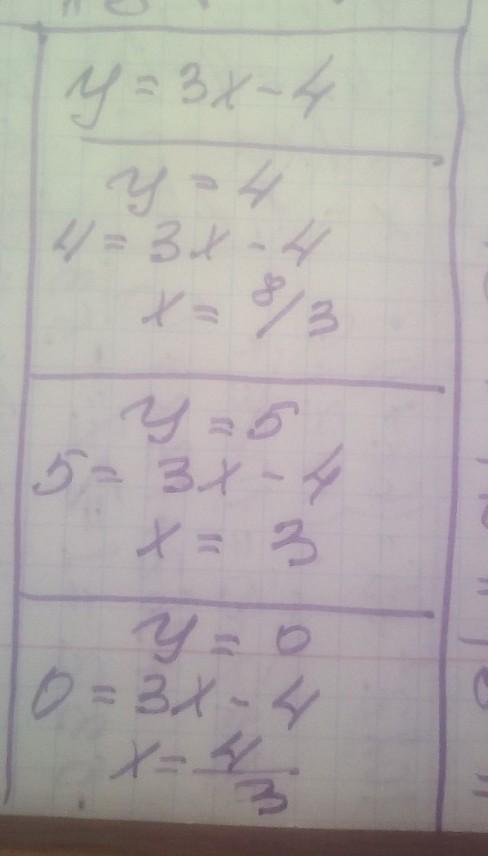 y = 3x - 4
y = 4
4 = 3x - 4
x = 8/3
y = 5
5 = 3x - 4
x = 3
y = 0
0 = 3x - 4
x = 4/3